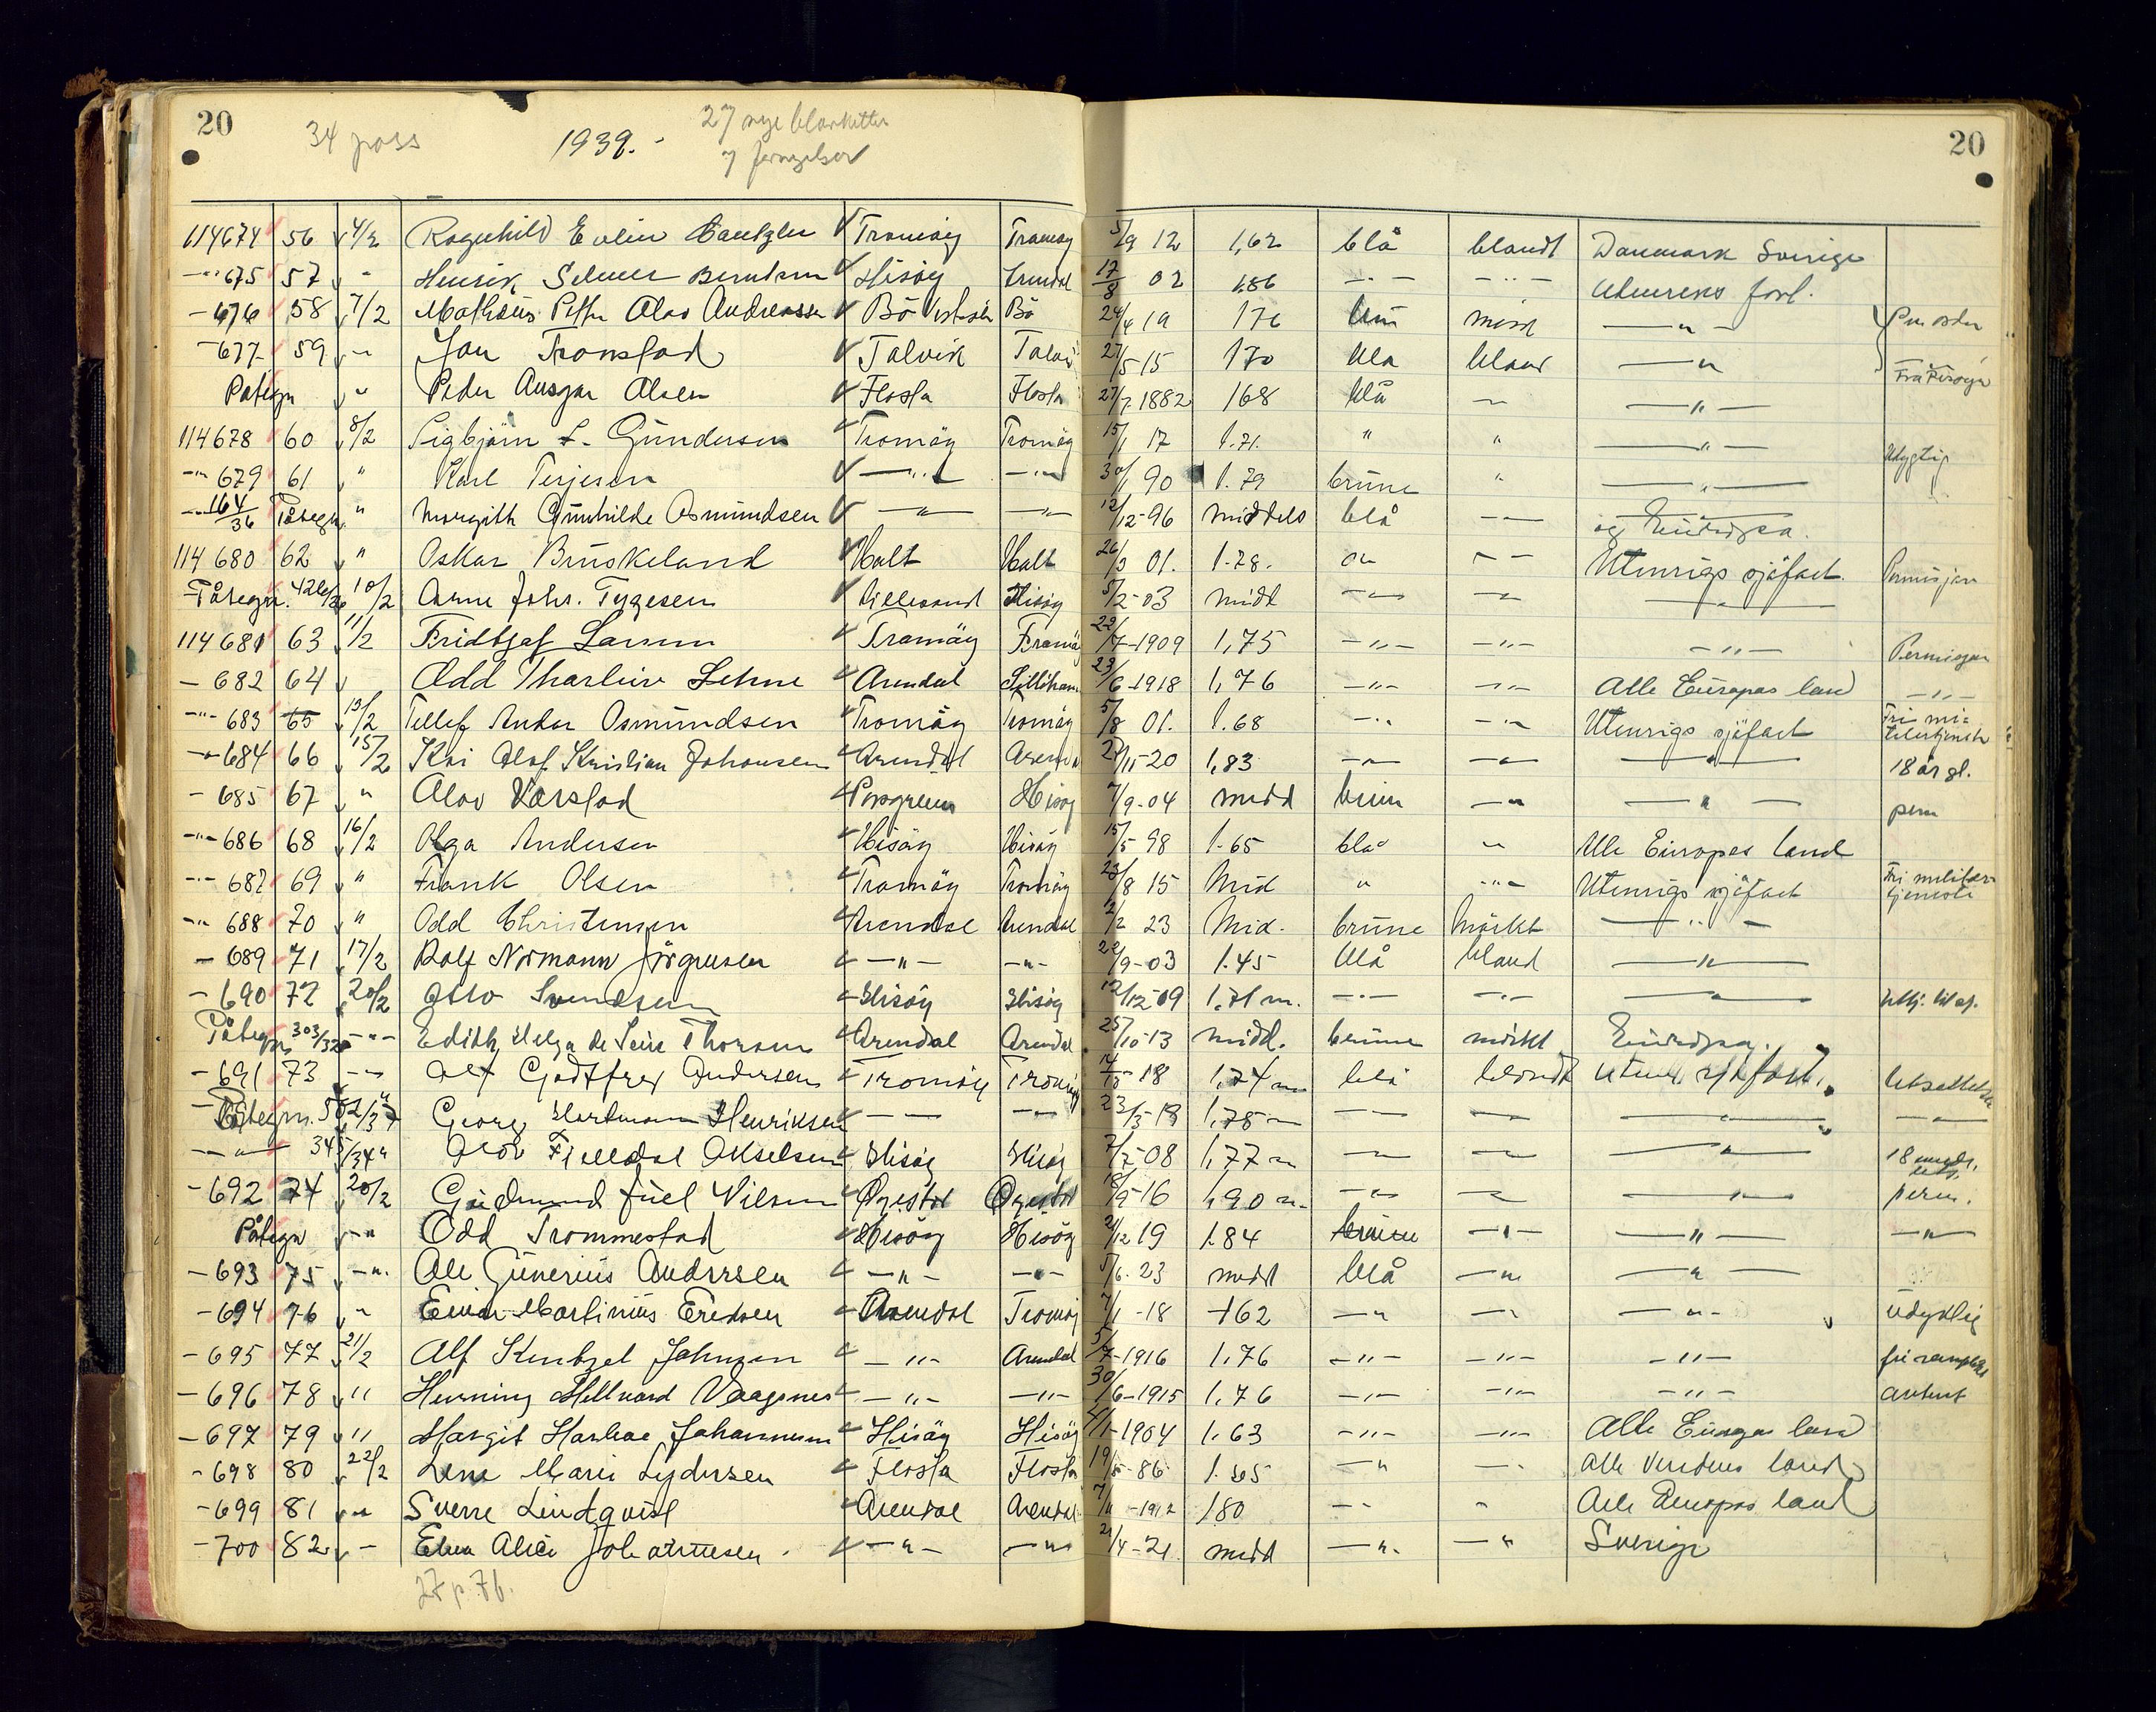 20
34 pass
1939.-
27 nye blanketter
7 fornyelser
20
114674 56 4/2 Ragnhild Evelin Tromöy Tromöy 5/9 12 1,62 blå blandt Danmark Sverige
-"- 675 57 - Henrik Selmer Berntsen Hisöy Arendal 17/8 02 1.86 -"- -"- Utenriks fart.
- 676 58 7/2 Mathæus Petter Olav Andreassen Bö Vesterålen Bö 24/4 19 176 mörk -"-
- 677 59 -"- Jan Tronstad Talvik Talvik 27/5 15 170 blå bland -"-
Påtegn " Peder Ansgar Olsen Flosta Flosta 27/7 1882 168 blå -"- -"-
114678 60 8/2 Sigbjörn L. Gundersen Tromöy Tromöy 15/1 17 1.71. " " -"- Udyktig
-"- 679 61 " Karl Terjesen -"- -"- 30/1 90 1.79 brune " -"-
-"- 164/36 Påtegn. " Margith Gunhilde Osmundsen -"- -"- 12/12-96 middels blå -"- og Europa.
114680 62 " Oskar Bruskeland Holt Holt 26/3 01. 1.78. -"- -"- Utenrigs sjöfart. Permisjon
Påtegn. 426/36 10/2 Arne Johs. Tygesen Lillesand Hisöy 5/2-03 midl -"- -"- -"-
114681 63 11/2 Fridtjof Larsen Tromöy Tromöy 22/7-1909 1,75 -"- -"- -"- Permisjon
- 682 64 Odd Tharlein Lehne Arendal Lilleham. 23/6-1918 1,76 -"- -"- Alle Europas land -"-
-"- 683 65 13/2 Tellef Anker Osmundsen Tromöy Tromöy 5/8 01. 1.68 -"- -"- Utenrigs sjöfart Fri militærtjeneste
-"- 684 66 15/2 Kai Olaf Kristian Johansen Arendal Arendal 27/11-20 1,83 -"- -"- -"- 18 år gl.
- 685 67 " Olav Vorstad Porsgrunn Hisöy 7/9-04 midd brun -"- -"- perm
-"- 686 68 16/2 Olga Andersen Hisöy Hisöy 15/5 98 1.65 blå -"- Alle Europas land
-"- 687 69 " Frank Olsen Tromöy Tromöy 23/8 15 Mid " -"- Utenrigs sjöfart Fri militærtjeneste
-"- 688 70 " Odd Christensen Arendal Arendal 12/2 23 Mid. brune Mörkt -"-
- 689 71 17/2 Rolf Normann Jörgensen -"- -"- 22/9-03 1.45 blå bland -"-
- 690 72 20/2 Otto Svendsen Hisöy Hisöy 12/12-09 1,71 m. -"- -"- -"-
Påtegn 303/32 -"- Edith Helga de Seue Thorsen Arendal Arendal 25/10-13 midd. brune mörkt Europa.
- 691 73 -"- Alf Godtfred Andersen Tromöy Tromöy 18 1,74 m blå blondt Utenr. sjöfart.
Påtegn. 502/37 " Georg Hartmann Henriksen -"- -"- 23/3-18 1,78 m -"- -"- -"- -"-
-"- 345/34 " Olav Fjelldal Akselsen Hisöy Hisöy 7/7-08 1,77 m -"- -"- -"- 18 mndr.
- 692 74 20/2 Gudmund Juel Nilsen Öyestad Öyestad 18/9-16 1,90 m. -"- -"- -"- perm.
Påtegn -"- Odd Trommestad Hisöy Hisöy 2/12 19 1.84 brune -"- -"- -"-
- 693 75 -"- Ole Gunerius Andersen -"- -"- 5/6.23 midd blå -"- -"-
- 694 76 " Einar Martinius Eriksen Arendal Tromöy 7/1-18 162 -"- -"- -"- Udyktig
- 695 77 21/2 Alf Kentzel Johnsen -"- Arendal 5/7-1916 1,76 -"- -"- -"-
- 696 78 " Henning Hellvard Vaagsnes -"- -"- 30/6-1915 1,76 -"- -"- -"-
- 697 79 " Margit Johannesen Hisöy Hisöy 4/1-1904 1.63 -"- -"- Alle Europas land
- 698 80 22/2 Lene Marie Lydersen Flosta Flosta 19/5-86 1.65 -"- -"- Alle Verdens land
- 699 81 -"- Sverre Lindqvist Arendal Arendal 7/11-1912 1.80 -"- " Alle Europas land
- 700 82 - Elna Alice Johannesen. -"- -"- 21/4-21. midd -"- -"- Sverige
27 p. 76.